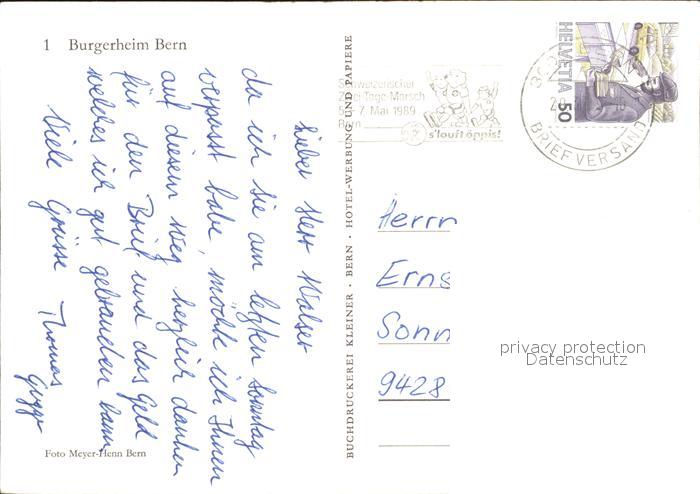 1 Burgerheim Bern
Lieber Herr Walser
da ich Sie am letzten Sonntag
verpasst habe, möchte ich Ihnen
auf diesem Weg herzlich danken
für den Brief und das Geld
welches ich gut gebrauchen kann.
Viele Grüsse Thomas
Foto Meyer-Henn Bern
BUCHDRUCKEREI KLEINER · BERN · HOTEL-WERBUNG UND PAPIERE
Schweizerischer
Zwei-Tage-Marsch
5.-7. Mai 1989
Bern
s'louft öppis!
BRIEFVERSAND
HELVETIA 50
Herrn
Erns
Sonn
9428
privacy protection
Datenschutz